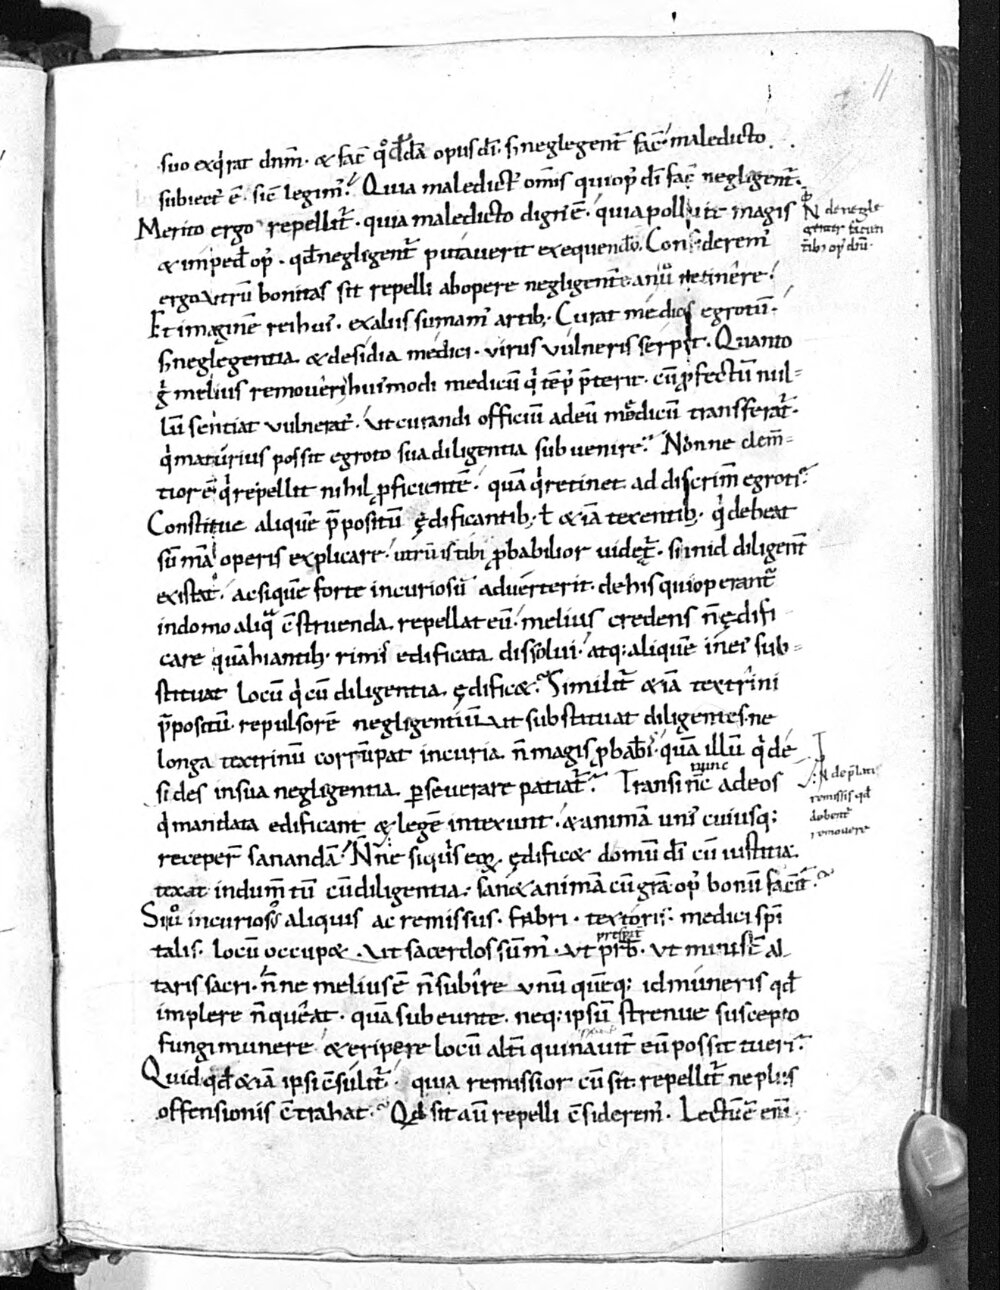 11
suo exq̇rat dnm̄· & fac̄ q̊dd̄ā opus dī· s; neglegent̄ fac̄· maledicto
subiect᷒ ē· sic̄ legim᷒· Quia maledict᷒ om̄is qui op᷒ dī fac̄ negligent̄·
Merito ergo repellit᷒· quia maledicto dign᷒ ē· quia polluit magis
& imped̄ op᷒· qd̄ negligent̄ putauerit exequendū· Considerem᷒
ergo utrū bonitas sit repelli ab opere negligent̄ an uº retinēre·
Et imaginē rei hui᷒· ex aliis sumam᷒ artib;· Curat medic᷒ egrotū·
s; neglegentia & desidia medici· virus vulneris serpit· Quanto
g̊ melius removeri huiusmodi medicū qi tēp᷒ p̄terit· cū p̱fectū nul-
lū sentiat vulnerat᷒· ut curandi officiū ad eū modicū transferat᷒·
qi maturius possit egroto sua diligentia subvenire· Nonne clem̄-
tior ē qi repellit nihil p̱ficientē· quā qi retinet ad discrim̄ egroti·
Constitue aliquē p̄positū ędificantib;· ł & iā texentib;· qi debeat
sūmā operis explicare· utrū is tibi p̱babilior videt᷒· si inid diligent̄
existat· ac siquē forte incuriosū adverterit· de his qui operant᷒
in domo aliqa c̄struenda· repellat eū· melius credens n̄ ędifi
care quā hiantib; rimis edificata dissolui· atq; aliquē in ei᷒ sub-
stituat locū qi cū diligentia ędific&· Similit᷒ & iā textrini
p̄positū· repulsorē negligentiū ut substituat diligentes· ne
longa textrinū corrūpat incuria· n̄ magis p̱babił· quā illū qi de
sides in sua negligentia p̱severare patiat᷒· Transi n̄c ad eos
nunc
qi mandata edificant & legē intexunt· & animā uni᷒ cuiusq;
receper̄ sanandā· N̄ne siquis eoꝝ ędific& domū dī cū iustitia·
texat indum̄tū cū diligentia· san& animā cū gr̄a op᷒ bonū facit·
Si uº incurios᷒ aliquis ac remissus· fabri· textoris· medici sp̄i
talis· locū occup&· ut sacerdos sūm᷒· ut pr̄b̄· ut minist᷒ al
taris sacri· n̄ne melius ē n̄ subire unū quēq; id muneris qd̄
implere n̄ queat· quā subeunte· neq; ipsū strenue suscepto
fungi munere & eripere locū alt̄i qui navit᷒ eū possit tueri·
Quid qd̄ & iā ipsi c̄sulit᷒· quia remissior cū sit· repellit᷒ ne plus
offensionis c̄trahat· Qd̄ sit aū repelli c̄siderem᷒· Lectū ē em̄·
N̄ de negle
genter facien
tib; op᷒ dn̄i·
N̄ de p̄latis
remissis qd̄
debent᷒
removere